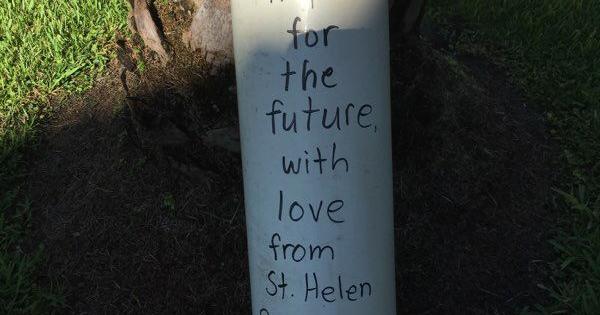 for
the
future,
with
love
from
St. Helen